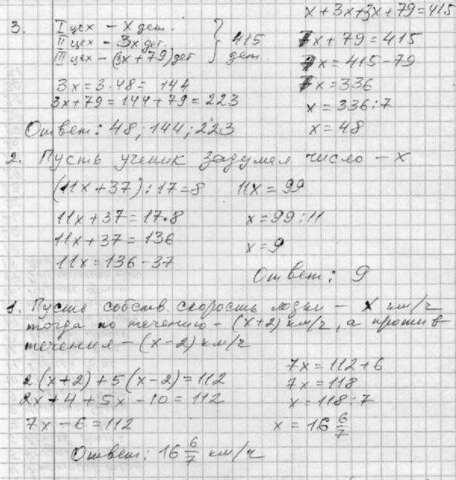 x + 3x + 3x + 79 = 415
3. I цех – x дет.
II цех – 3x дет.
III цех – (3x + 79) дет
} 415 дет.
7x + 79 = 415
7x = 415 - 79
7x = 336
x = 336 : 7
x = 48
3x = 3 · 48 = 144
3x + 79 = 144 + 79 = 223
Ответ: 48; 144; 223
2. Пусть ученик задумал число – x
(11x + 37) : 17 = 8
11x + 37 = 17 · 8
11x + 37 = 136
11x = 136 - 37
11x = 99
x = 99 : 11
x = 9
Ответ: 9
1. Пусть собств. скорость лодки – x км/ч
тогда по течению – (x+2) км/ч, а против
течения – (x – 2) км/ч
2(x+2) + 5(x-2) = 112
2x + 4 + 5x - 10 = 112
7x - 6 = 112
7x = 112 + 6
7x = 118
x = 118 : 7
x = 16 6/7
Ответ: 16 6/7 км/ч